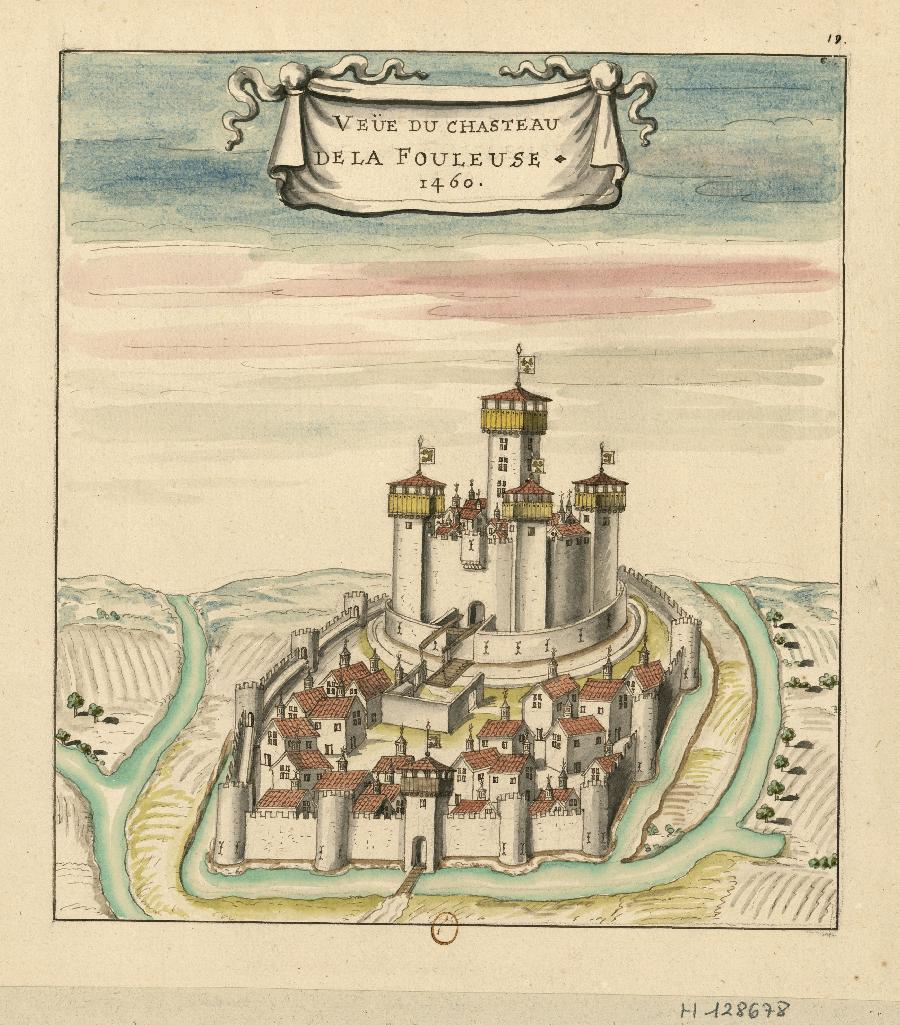 19.
VEÜE DU CHASTEAU
DE LA FOULEUSE
1460.
H 128678